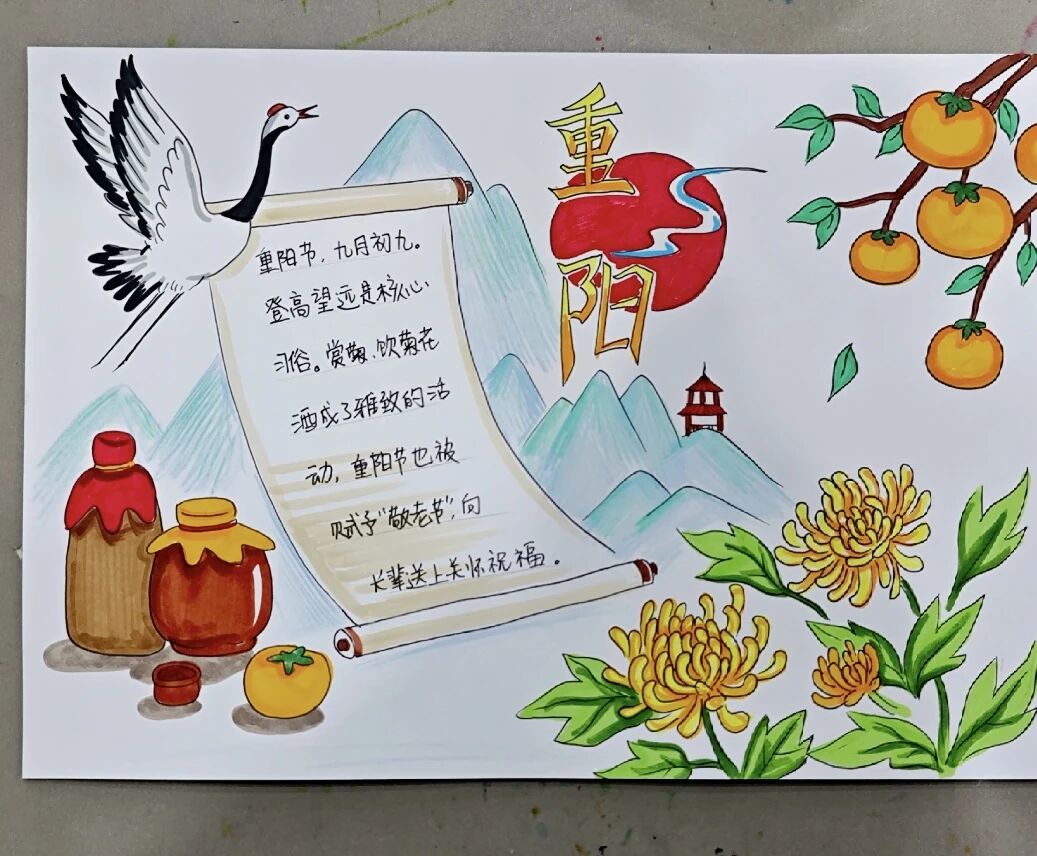 重阳
重阳节，九月初九。
登高望远是核心
习俗。赏菊、饮菊花
酒成了雅致的活
动，重阳节也被
赋予"敬老节"，向
长辈送上关怀祝福。